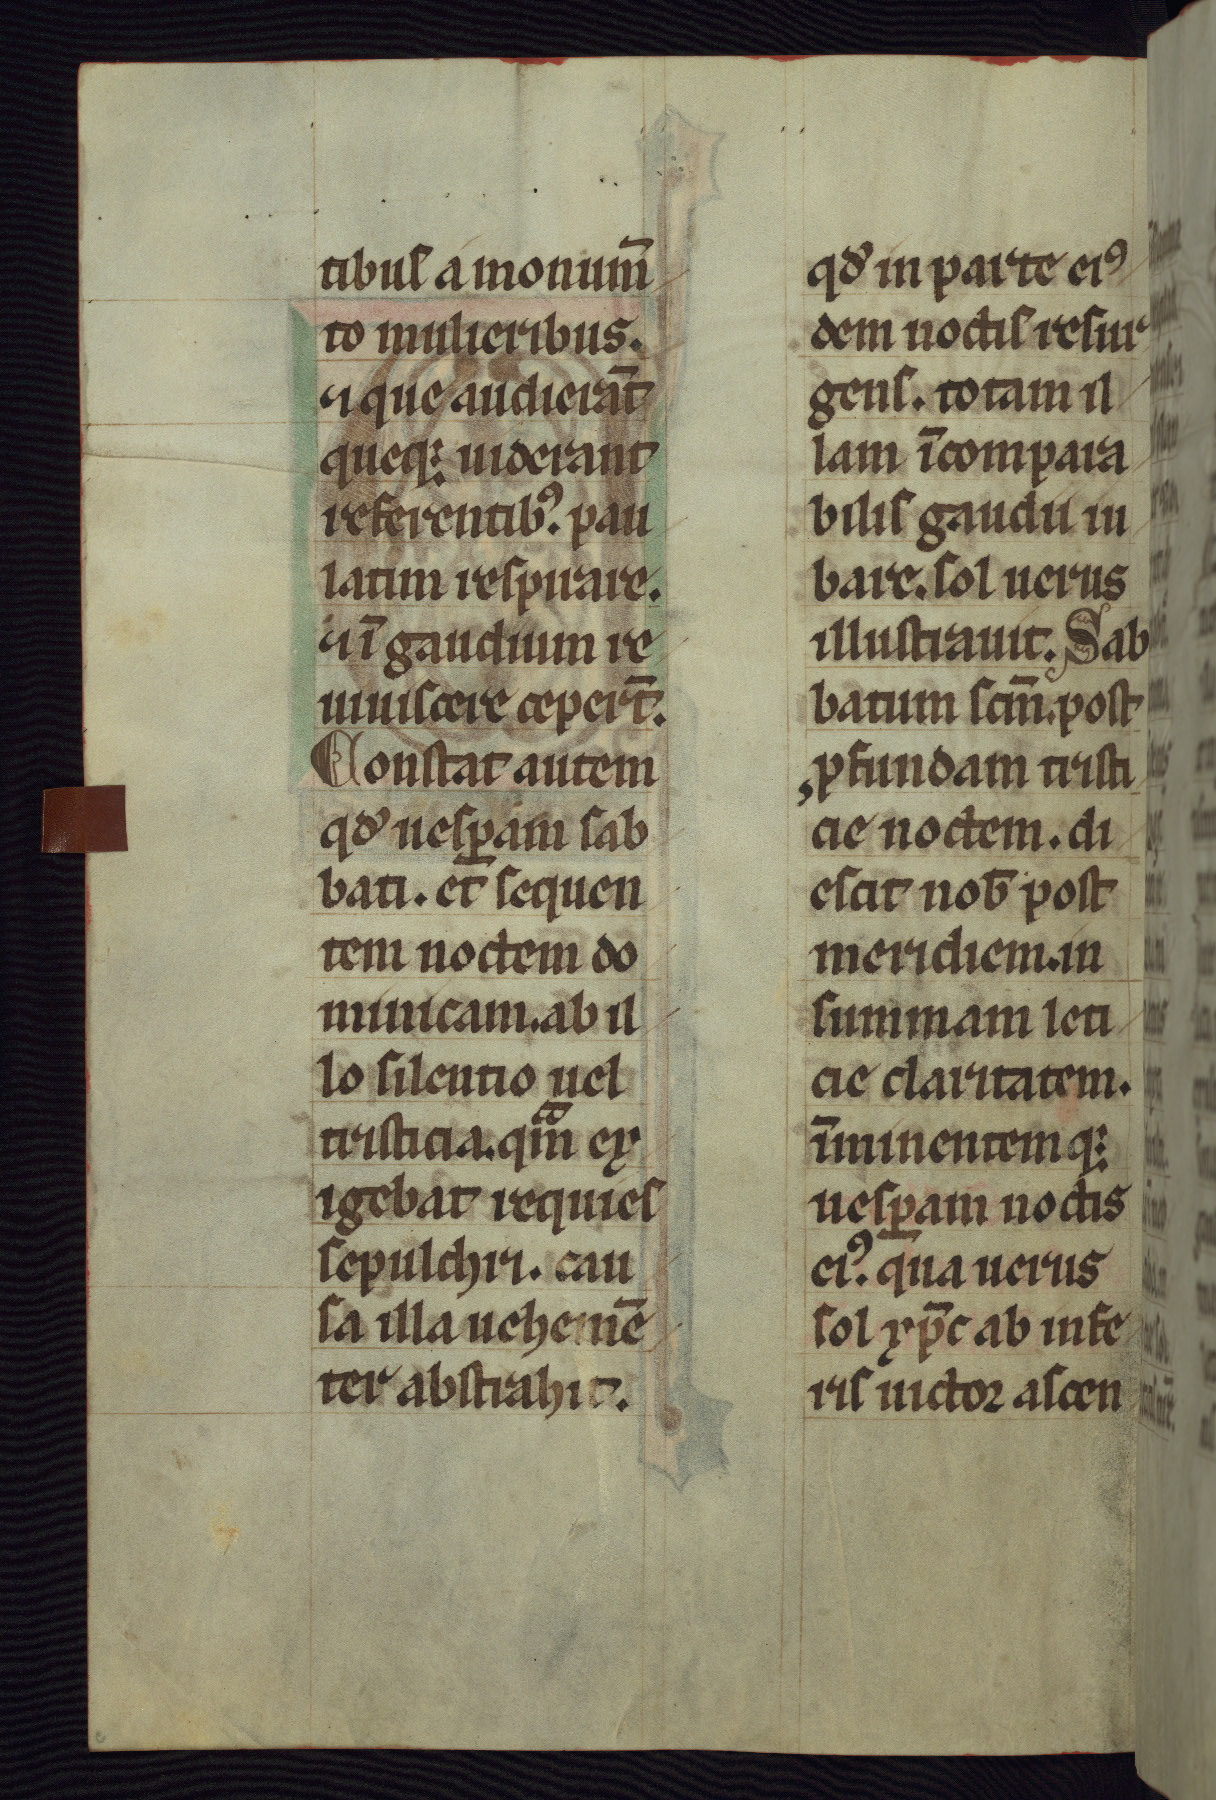 tibus a monum̄
to mulieribus.
⁊ que audierāt
queq; uiderant
referentibꝰ. pau
latim respirare.
⁊ ī gaudium re
uiuiscere ceper̄t.
Constat autem
qđ uesꝑam sab
bati. et sequen
tem noctem do
minicam. ab il
lo silentio uel
tristicia. qm̄ ex
igebat requies
sepulchri. cau
sa illa uehemē
ter abstrahit.
qđ in parte eiꝰ
dem noctis resur
gens. totam il
lam īcompara
bilis gaudii iu
bare. sol uerus
illustrauit. Sab
batum scm̄. post
ꝓfundam tristi
cie noctem. di
escit nob̄ post
meridiem. in
summam leti
cie claritatem.
īminentemq;
uesꝑam noctis
eiꝰ. qua uerus
sol xp̄c ab infe
ris uictor ascen